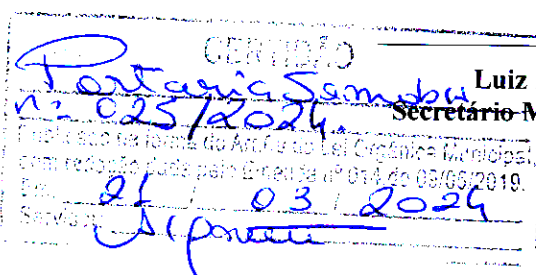 CERTIDÃO
Portaria Semobu
nº 025/2024.
Luiz
Secretário M
Publicado na forma do Artigo da Lei Orgânica Municipal,
com redação dada pela Emenda nº 014 de 09/05/2019.
Em, 21 / 03 / 2024
Servidor: